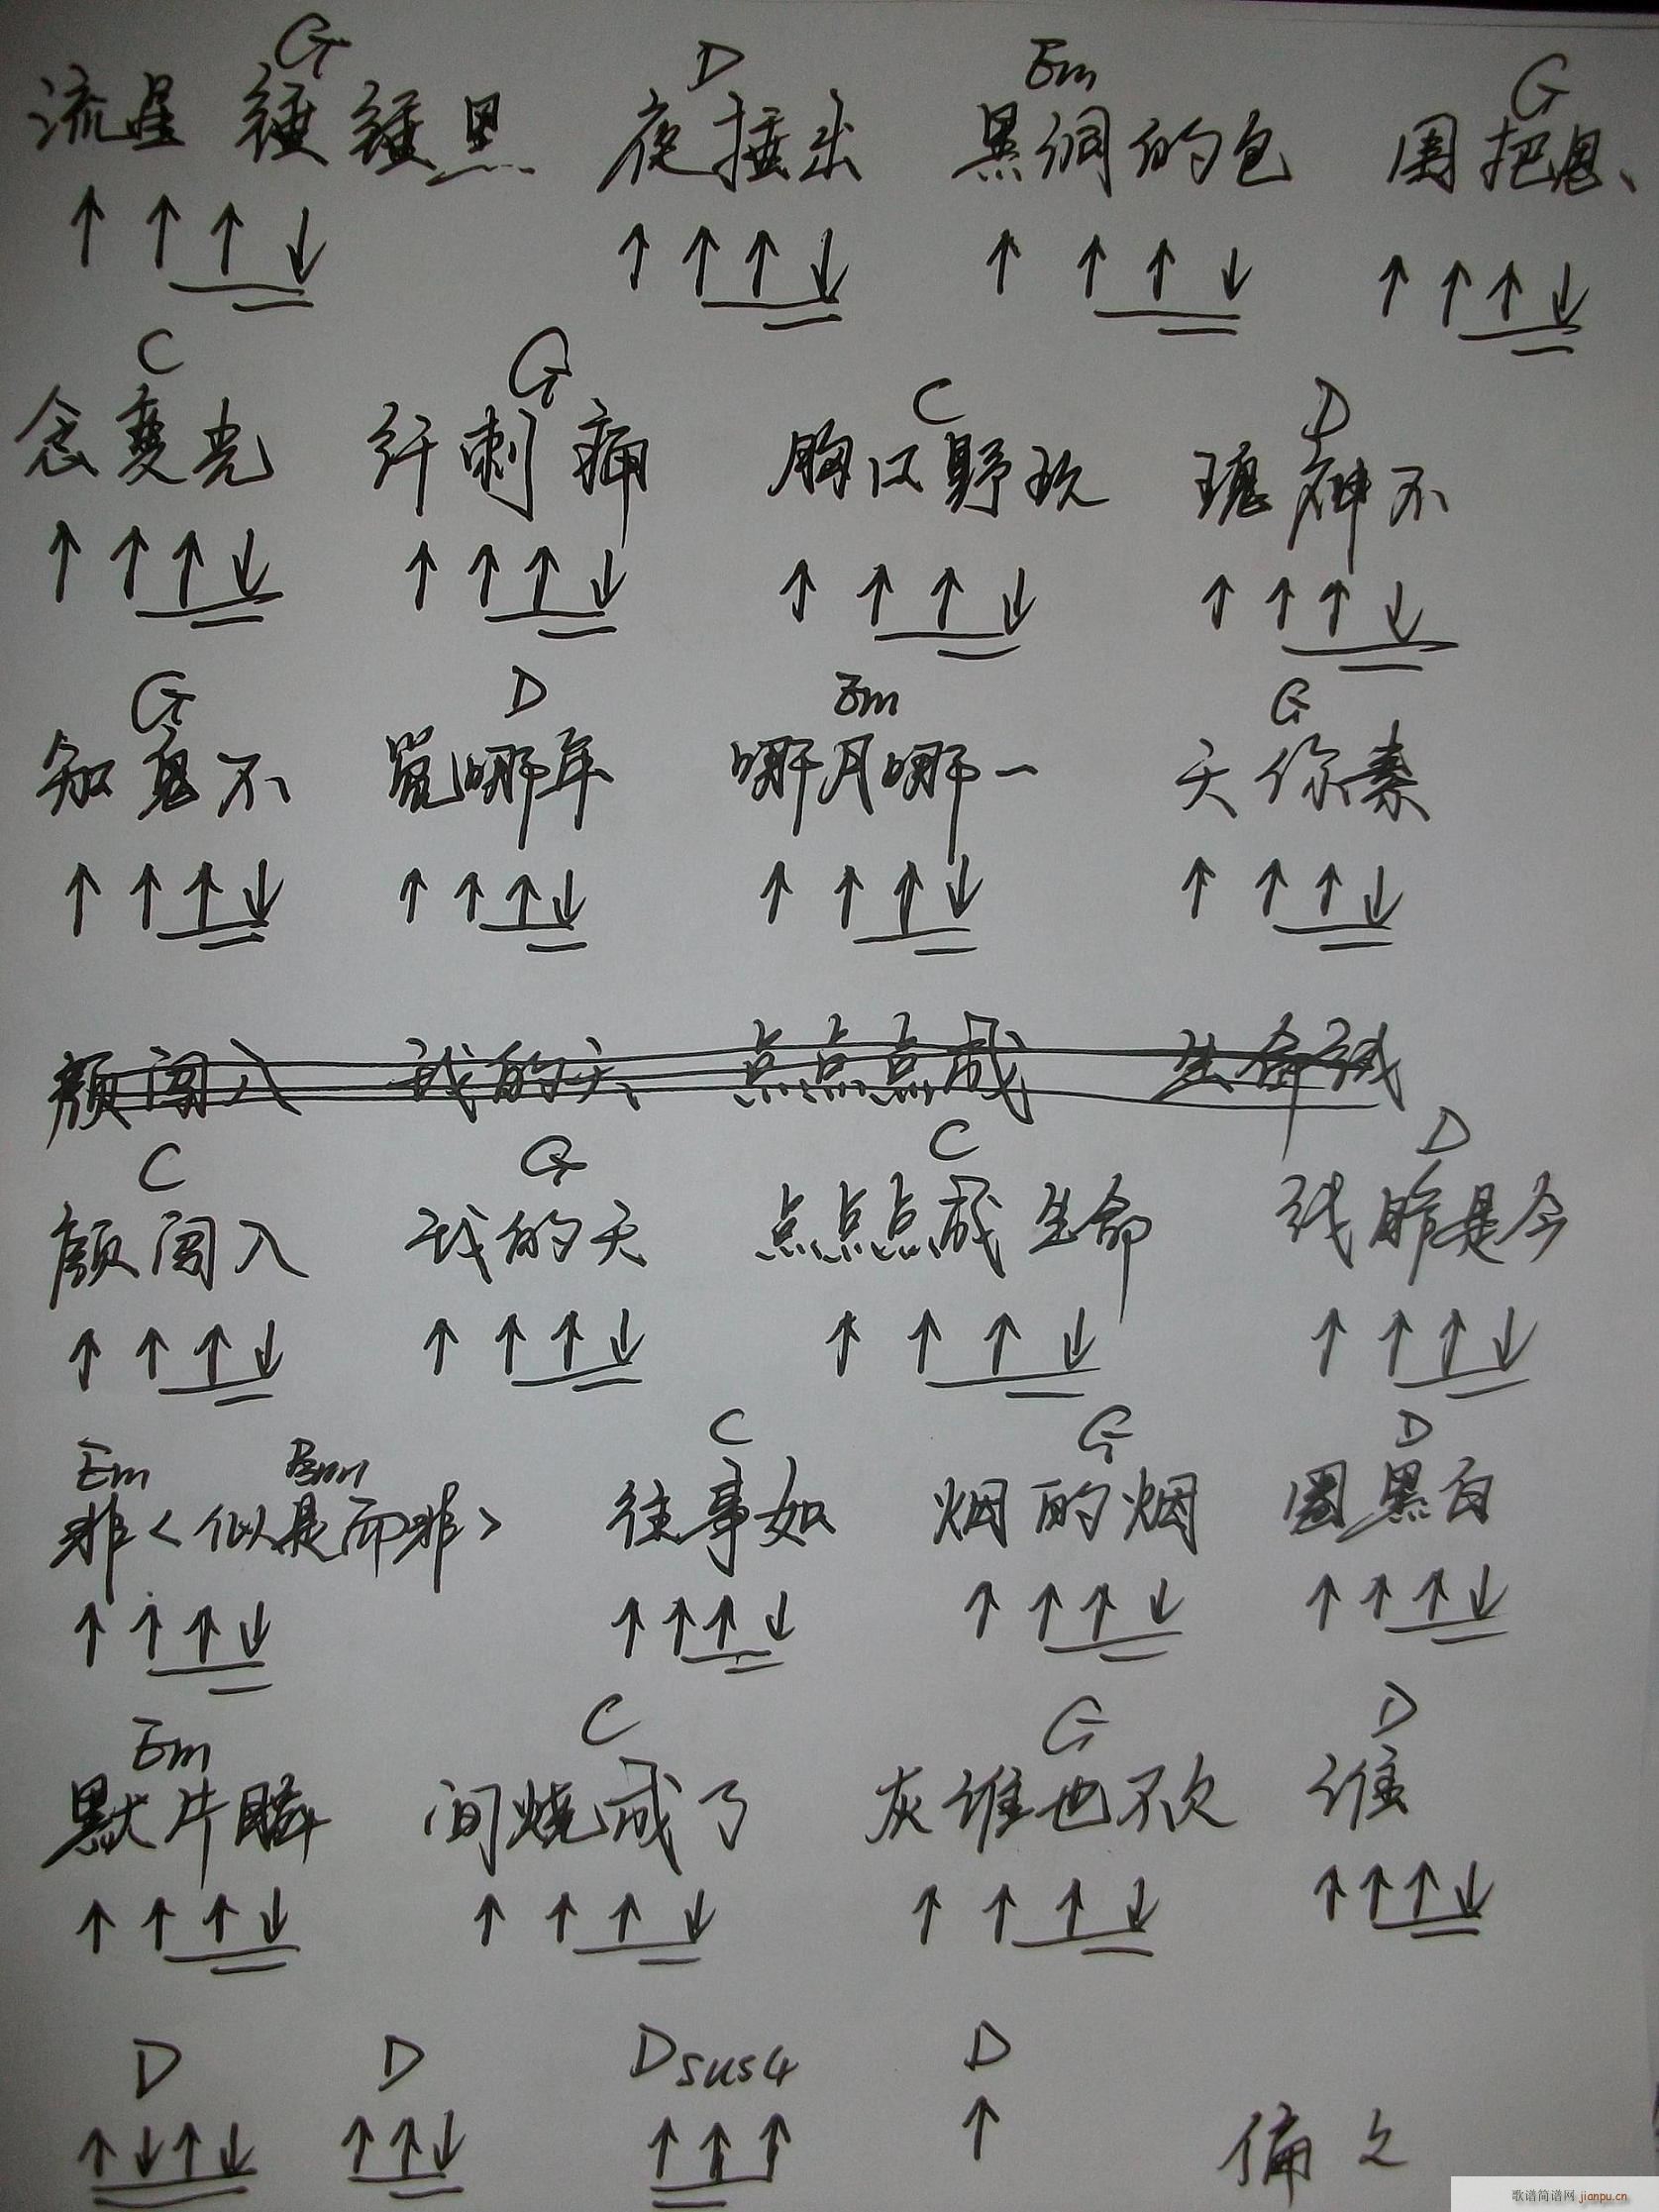 G D Em G
流星 锤锤黑 夜捶出 黑洞的包 围把思、
↑ ↑ ↑ ↓ ↑ ↑ ↑ ↓ ↑ ↑ ↑ ↓ ↑ ↑ ↑ ↓
C G C D
念变光 纤刺痛 胸口野玫 瑰神不
↑ ↑ ↑ ↓ ↑ ↑ ↑ ↓ ↑ ↑ ↑ ↓ ↑ ↑ ↑ ↓
G D Em G
知鬼不 觉哪年 哪月哪一 天你素
↑ ↑ ↑ ↓ ↑ ↑ ↑ ↓ ↑ ↑ ↑ ↓ ↑ ↑ ↑ ↓
颜闯入 我的天、 点点点成 生命线
C G C D
颜闯入 我的天 点点点成生命 线昨是今
↑ ↑ ↑ ↓ ↑ ↑ ↑ ↓ ↑ ↑ ↑ ↓ ↑ ↑ ↑ ↓
Em Bm C G D
非<似是而非> 往事如 烟的烟 圈黑白
↑ ↑ ↑ ↓ ↑ ↑ ↑ ↓ ↑ ↑ ↑ ↓ ↑ ↑ ↑ ↓
Em C G D
默片瞬 间烧成了 灰谁也不欠 谁
↑ ↑ ↑ ↓ ↑ ↑ ↑ ↓ ↑ ↑ ↑ ↓ ↑ ↑ ↑ ↓
D D Dsus4 D
↑ ↓ ↑ ↓ ↑ ↑ ↓ ↑ ↑ ↑ ↑ 偏
歌谱简谱网 jianpu.cn